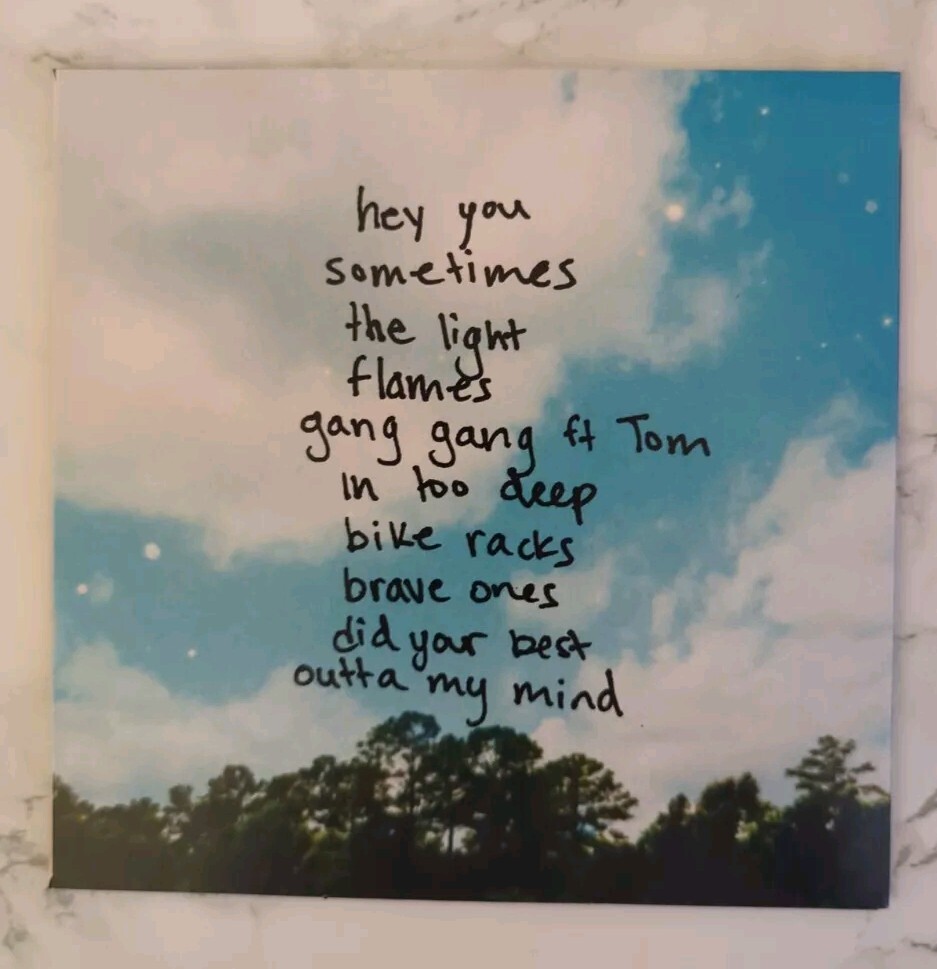 hey you
sometimes
the light
flames
gang gang ft Tom
in too deep
bike racks
brave ones
did your best
outta my mind